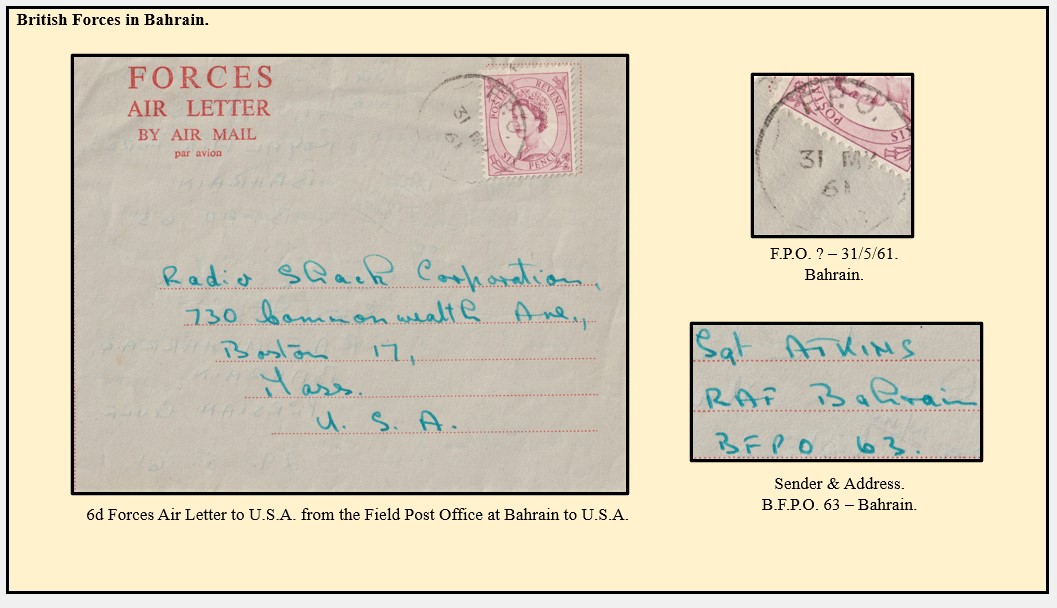 British Forces in Bahrain.
FORCES
AIR LETTER
BY AIR MAIL
par avion
POSTAGE REVENUE
SIX PENCE
31 MY
61
Radio Shack Corporation,
730 Commonwealth Ave.,
Boston 17,
Mass.
U. S. A.
6d Forces Air Letter to U.S.A. from the Field Post Office at Bahrain to U.S.A.
F.P.O.
POSTAGE
SIX
31 MY
61
F.P.O. ? – 31/5/61.
Bahrain.
Sgt ATKINS
RAF Bahrain
BFPO 63.
Sender & Address.
B.F.P.O. 63 – Bahrain.